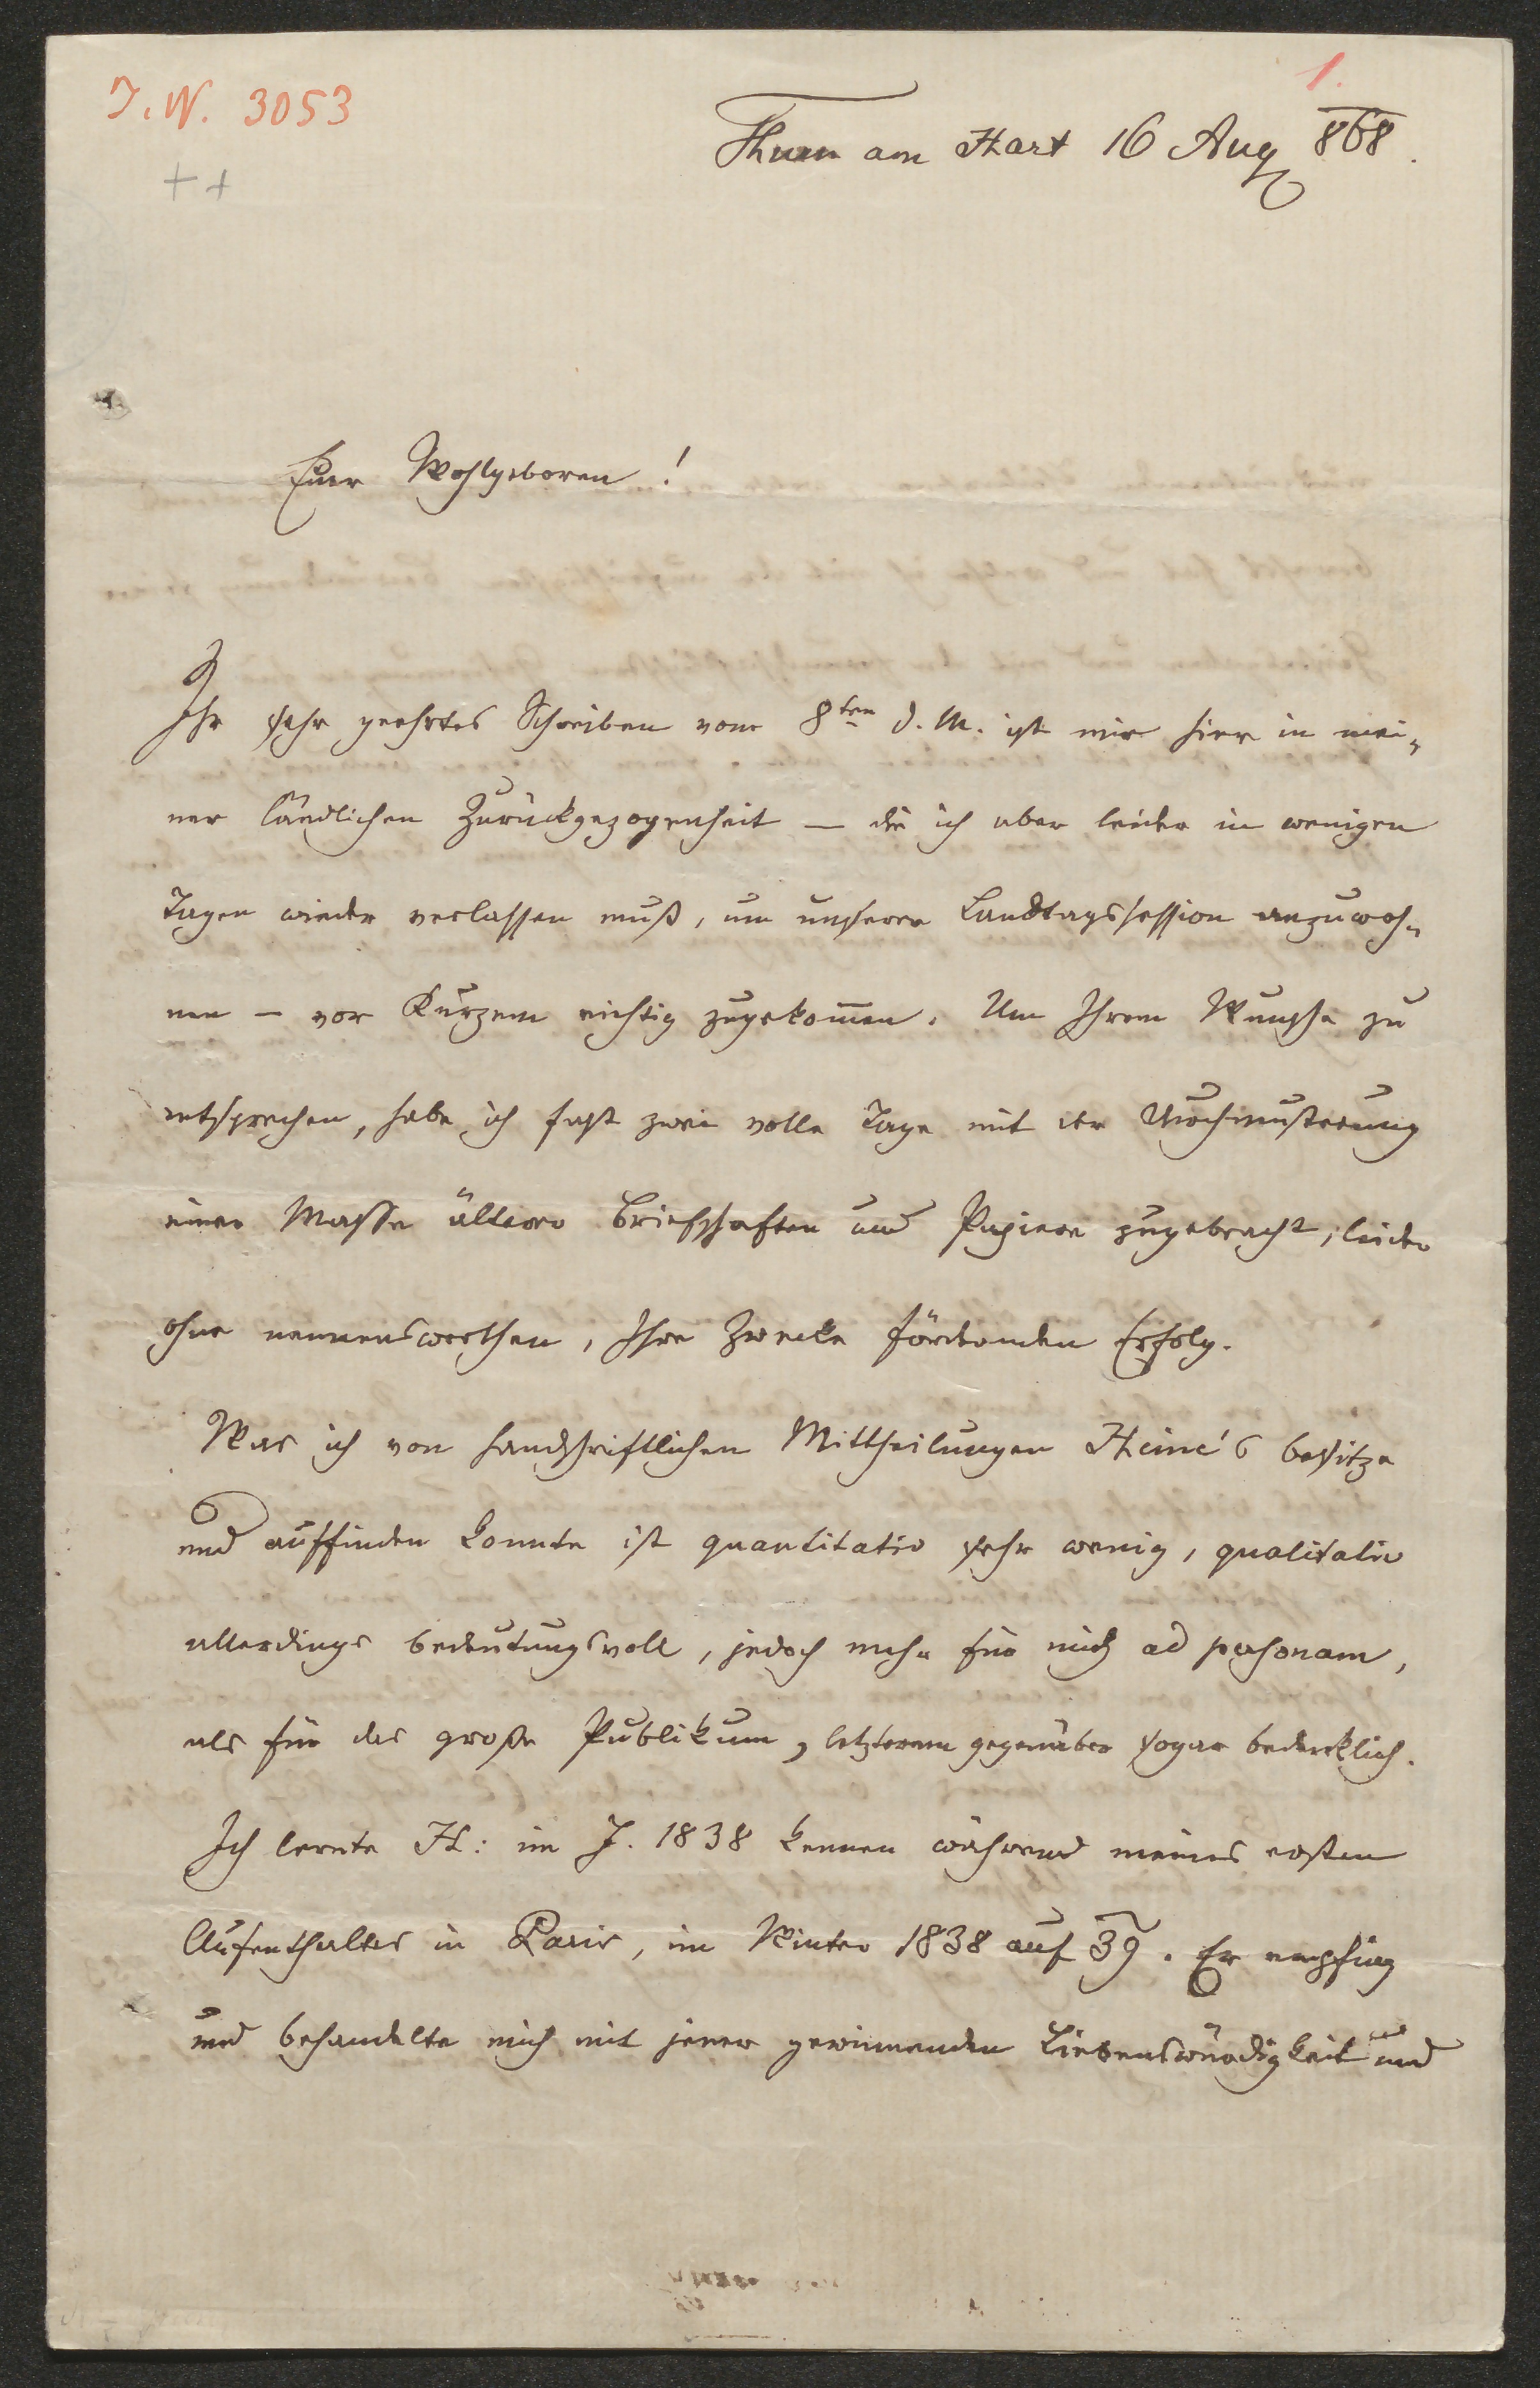 J. N. 3053
1.
++
Thurn am Hart 16 Aug 868.
Euer Wohlgeboren!
Ihr sehr geehrtes Schreiben vom 8ten d. M. ist mir hier in mei-
ner ländlichen Zurückgezogenheit – die ich aber leider in wenigen
Tagen wieder verlassen muß, um unserer Landtagssession anzuwoh-
nen – vor Kurzem richtig zugekom̅en. Um Ihrem Wunsche zu
entsprechen, habe ich fast zwei volle Tage mit der Durchmusterung
einer Masse älterer Briefschaften und Papiere zugebracht, leider
ohne nennenswerthen, Ihre Zwecke fördernden Erfolg.
Was ich von handschriftlichen Mittheilungen Heine's besitze
und auffinden konnte ist quantitativ sehr wenig, qualitativ
allerdings bedeutungsvoll, jedoch mehr für mich ad personam,
als für das große Publikum, letzterem gegenüber sogar bedenklich.
Ich lernte H: im J. 1838 kennen während meines ersten
Aufenthaltes in Paris, im Winter 1838 auf 39. Er empfing
und behandelte mich mit jener gewinnenden Liebenswürdigkeit und